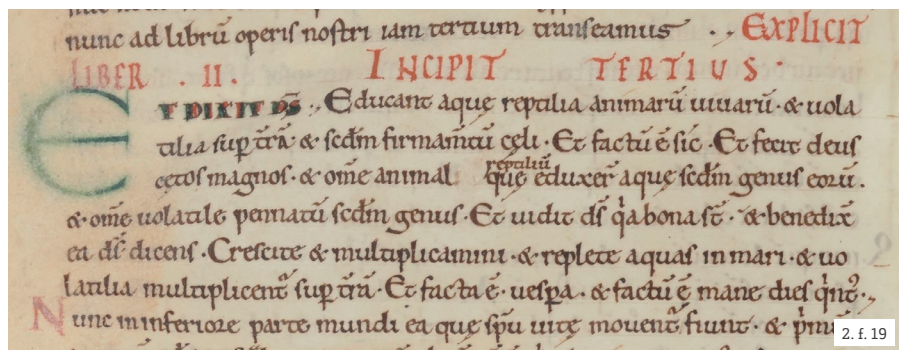 nunc ad librū operis nostri iam tertium transeamus . , EXPLICIT
LIBER . II . INCIPIT TERTIUS .
ET DIXIT DS̄ ., Educant aquę reptilia animarū uiuarū · & uola
tilia sup̄ tr̄ā · & scdm̄ firmam̄tū cęli · Et factū ē sic · Et fecit deus
cetos magnos · & om̄e animal reptiliū quę eduxer̄ aquę scdm̄ genus eorū .
& om̄e uolatile pennatū scdm̄ genus · Et uidit ds̄ q̇a bona st̄ · & benedix̄
ea ds̄ dicens · Crescite & multiplicamini · & replete aquas in mari · & uo
latilia multiplicent̄ sup̄ tr̄ā · Et facta ē · uesp̄a · & factū ē mane dies q̇nt᾽ · ,
Nunc in inferiore parte mundi ea quę sp̄u uitę mouent̄ fiunt · &
2. f. 19